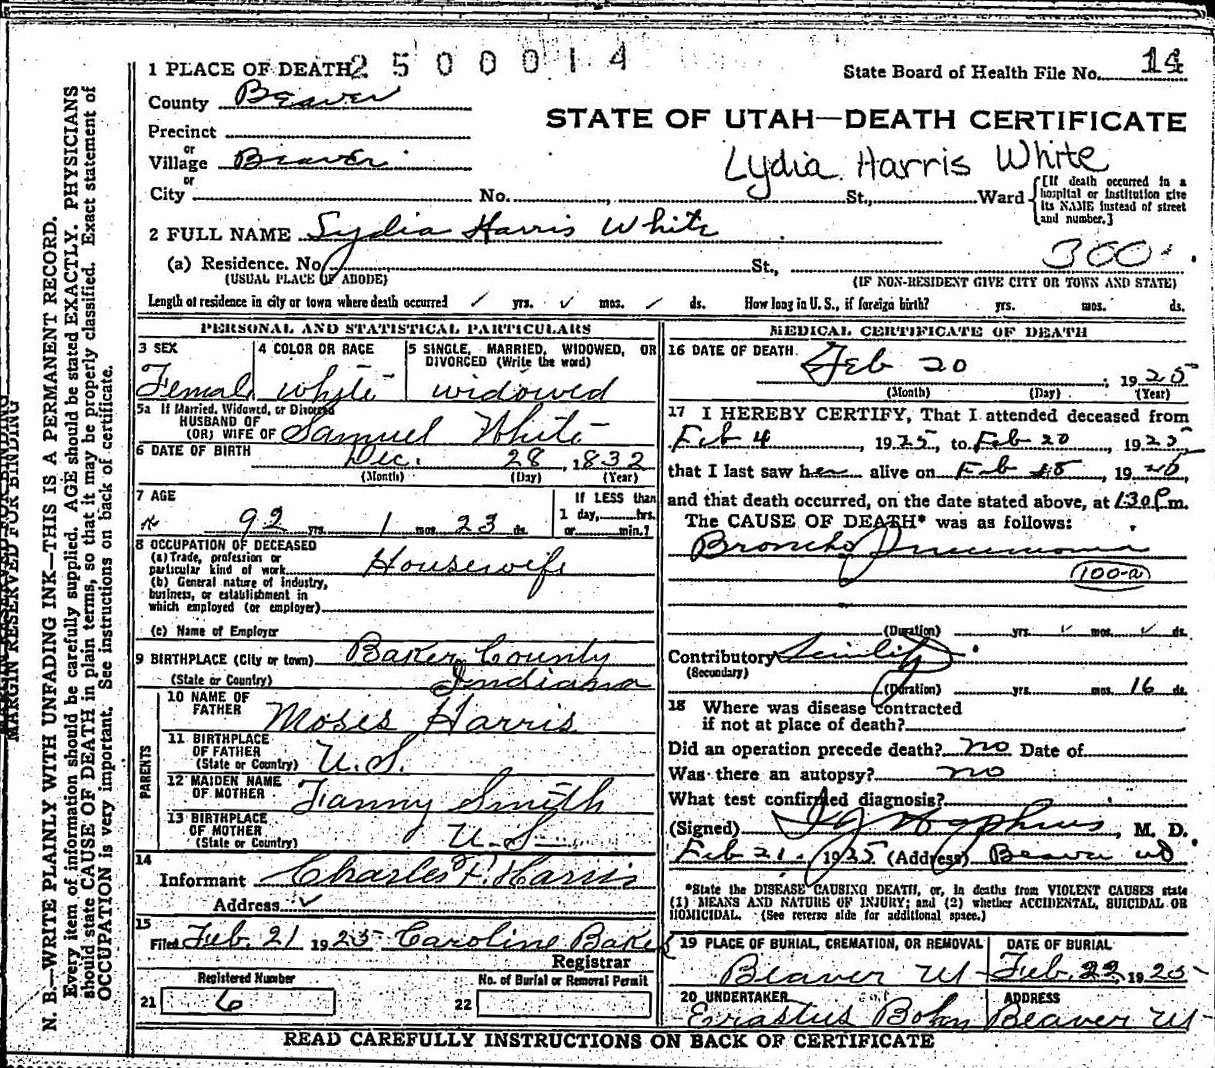 1 PLACE OF DEATH 2500014
State Board of Health File No. 14
County Beaver
STATE OF UTAH—DEATH CERTIFICATE
Precinct
or
Village Beaver
Lydia Harris White
or
City No. St., Ward
[If death occurred in a
hospital or institution give
its NAME instead of street
and number.]
2 FULL NAME Lydia Harris White
300
(a) Residence. No. St.,
(USUAL PLACE OF ABODE) (IF NON-RESIDENT GIVE CITY OR TOWN AND STATE)
Length of residence in city or town where death occurred yrs. mos. ds. How long in U. S., if foreign birth? yrs. mos. ds.
PERSONAL AND STATISTICAL PARTICULARS
3 SEX
Female
4 COLOR OR RACE
White
5 SINGLE, MARRIED, WIDOWED, OR
DIVORCED (Write the word)
widowed
5a If Married, Widowed, or Divorced
HUSBAND OF
(OR) WIFE OF Samuel White
6 DATE OF BIRTH Dec. 28, 1832
(Month) (Day) (Year)
7 AGE
92 yrs. 1 mos. 23 ds.
If LESS than
1 day, hrs.
or min.?
8 OCCUPATION OF DECEASED
(a) Trade, profession or
particular kind of work Housewife
(b) General nature of industry,
business, or establishment in
which employed (or employer)
(c) Name of Employer
9 BIRTHPLACE (City or town) Baker County
(State or Country) Indiana
PARENTS
10 NAME OF
FATHER Moses Harris
11 BIRTHPLACE
OF FATHER
(State or Country) U.S.
12 MAIDEN NAME
OF MOTHER Fanny Smith
13 BIRTHPLACE
OF MOTHER
(State or Country) U.S.
14
Informant Charles F. Harris
Address
15
Filed Feb. 21 1925 Caroline Baker
Registrar
Registered Number
21 6
No. of Burial or Removal Permit
22
MEDICAL CERTIFICATE OF DEATH
16 DATE OF DEATH
Feb 20, 1925
(Month) (Day) (Year)
17 I HEREBY CERTIFY, That I attended deceased from
Feb 4, 1925, to Feb 20, 1925
that I last saw her alive on Feb 18, 1925
and that death occurred, on the date stated above, at 1:30 P.m.
The CAUSE OF DEATH* was as follows:
Broncho Pneumonia
100-a
(Duration) yrs. mos. ds.
Contributory Senility
(Secondary)
(Duration) yrs. mos. 16 ds.
18 Where was disease contracted
if not at place of death?
Did an operation precede death? no Date of
Was there an autopsy? no
What test confirmed diagnosis?
(Signed) M. D.
Feb 21, 1925 (Address) Beaver
*State the DISEASE CAUSING DEATH, or, in deaths from VIOLENT CAUSES state
(1) MEANS AND NATURE OF INJURY; and (2) whether ACCIDENTAL, SUICIDAL OR
HOMICIDAL. (See reverse side for additional space.)
19 PLACE OF BURIAL, CREMATION, OR REMOVAL
Beaver Ut
DATE OF BURIAL
Feb. 22, 1925
20 UNDERTAKER
Erastus Bohn
ADDRESS
Beaver Ut
READ CAREFULLY INSTRUCTIONS ON BACK OF CERTIFICATE
MARGIN RESERVED FOR BINDING
N. B.—WRITE PLAINLY WITH UNFADING INK—THIS IS A PERMANENT RECORD.
Every item of information should be carefully supplied. AGE should be stated EXACTLY. PHYSICIANS
should state CAUSE OF DEATH in plain terms, so that it may be properly classified. Exact statement of
OCCUPATION is very important. See instructions on back of certificate.